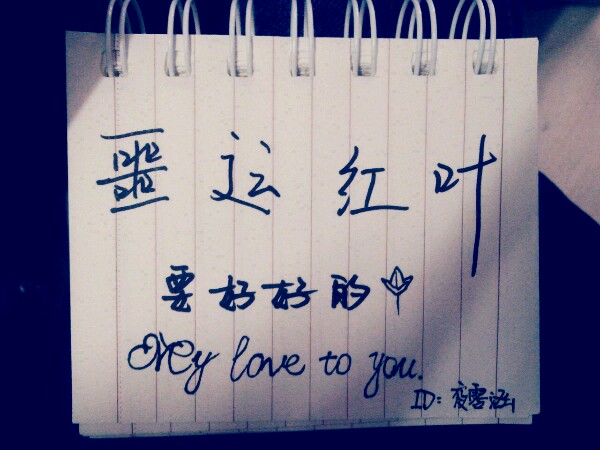 噩运红叶
要好好的
My love to you.
ID:夜雾涵